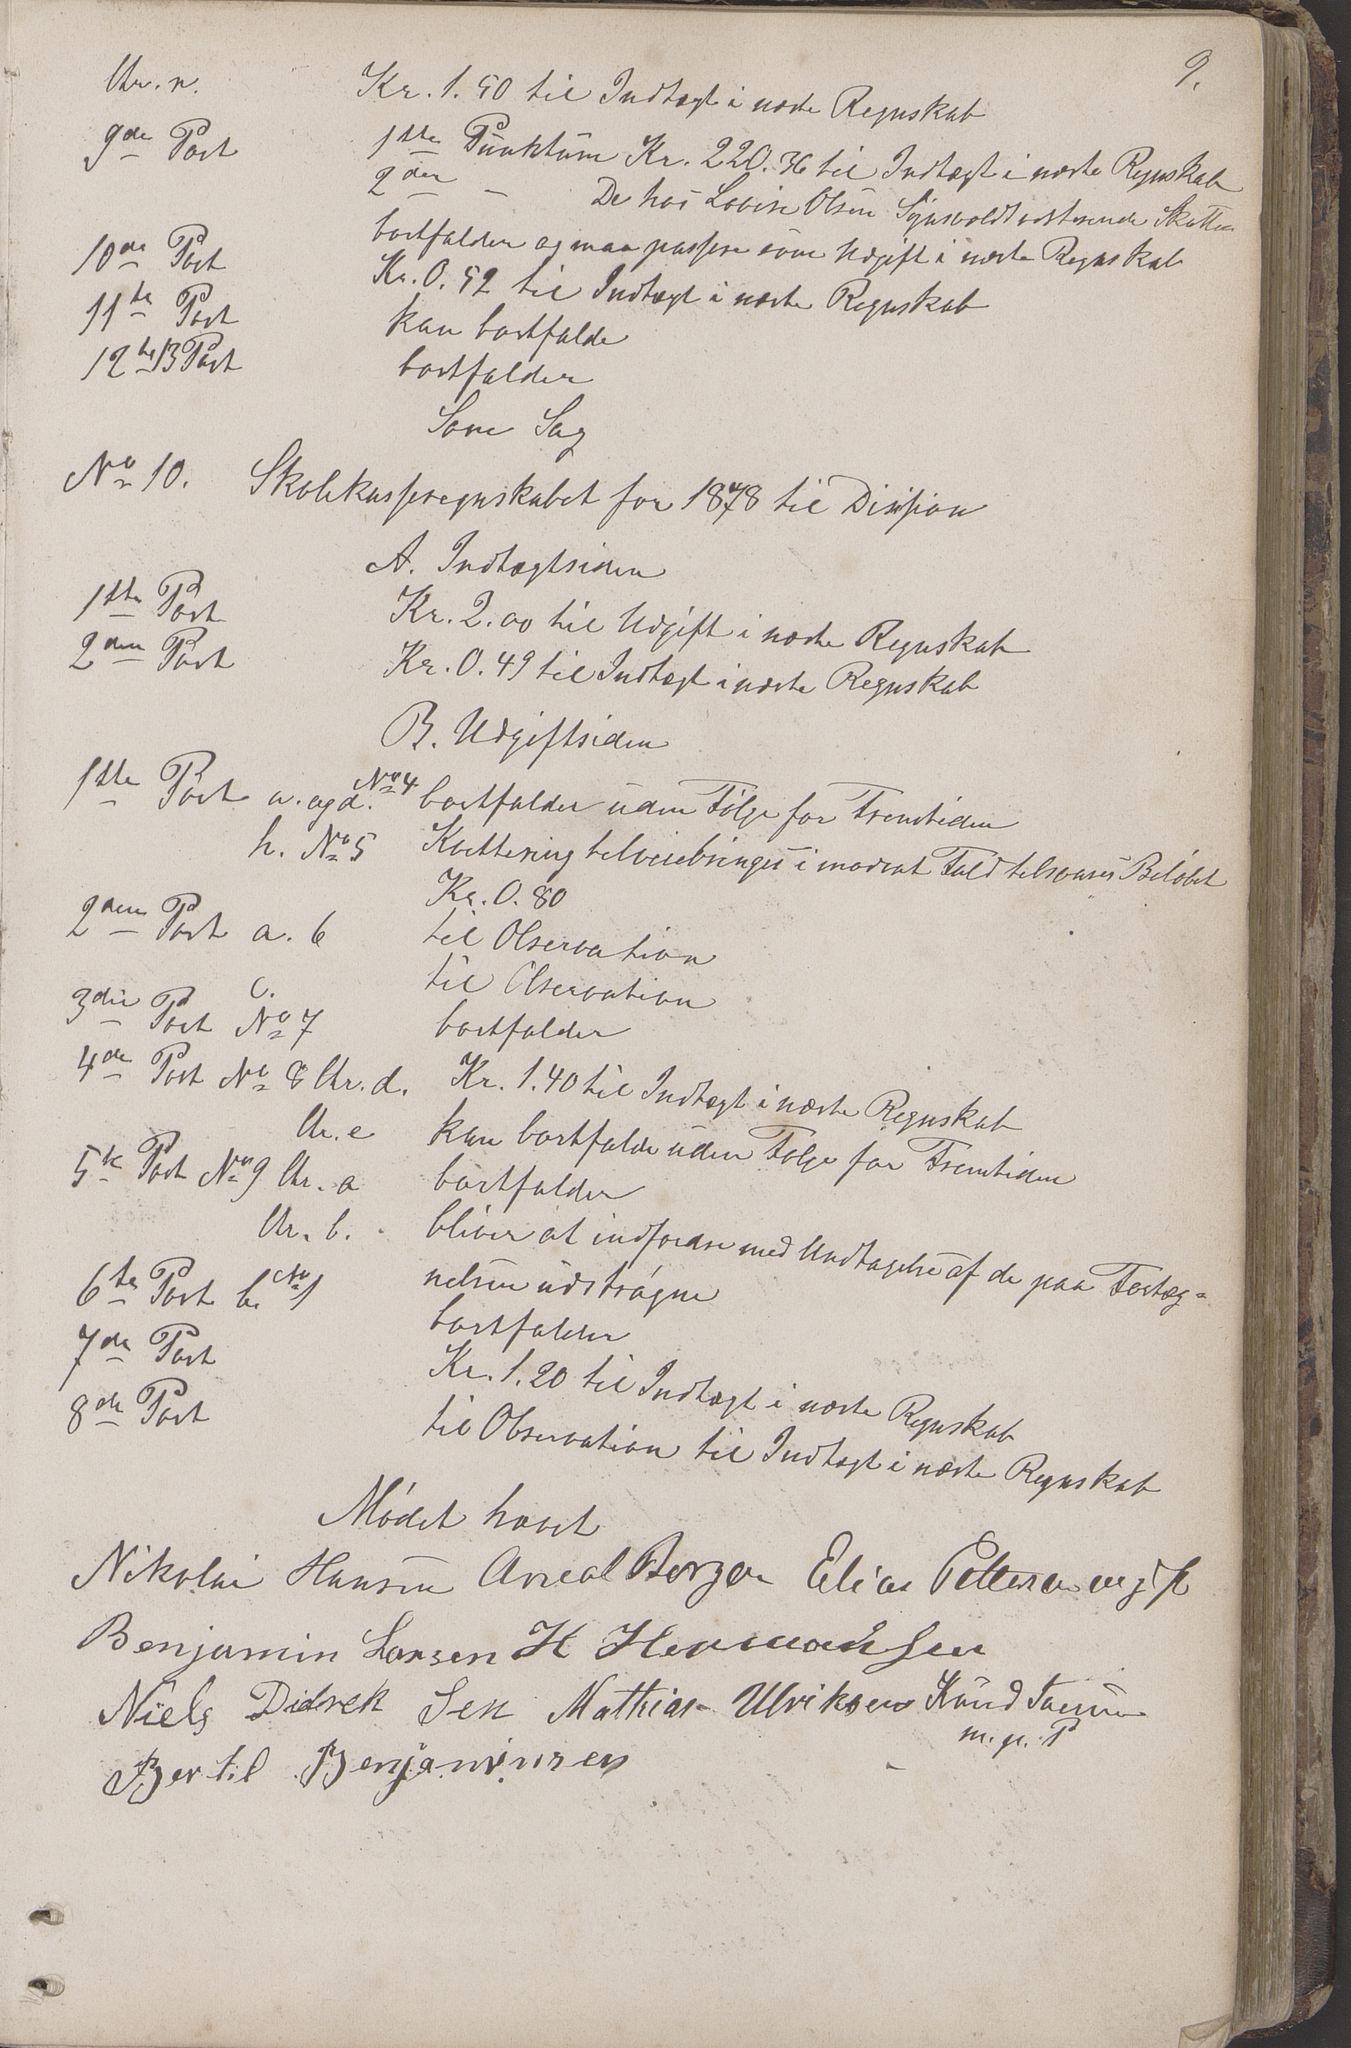 9.
Ltr. n. Kr. 1.50 til Indtægt i næste Regnskab
9de Post 1ste Punktum Kr. 220.36 til Indtægt i næste Regnskab
2det – De hos Lovise Olsen resterende Skatter
bortfalder og maa passere som Udgift i næste Regnskab
10de Post Kr. 0.52 til Indtægt i næste Regnskab
11te Post kan bortfalde
12te 13 Post bortfalder
Som Sag
No 10. Skolekasseregnskabet for 1878 til Desision
A. Indtægtsiden
1ste Post Kr. 2.00 til Udgift i næste Regnskab
2den Post Kr. 0.49 til Indtægt i næste Regnskab
B. Udgiftsiden
1ste Post a. og d. No 4 bortfalder uden Følge for Fremtiden
h. No 5 Kvittering tilveiebringes i modsat Fald tilsvares Beløbet
Kr. 0.80
2den Post a. b til Observation
c. til Observation
3die Post No 7 bortfalder
4de Post No 8 Ltr. d. Kr. 1.40 til Indtægt i næste Regnskab
Ltr. e kan bortfalde uden Følge for Fremtiden
5te Post No 9 Ltr. a bortfalder
Ltr. b. bliver at indfordre med Undtagelse af de paa Forteg-
nelsen udstrøgne
6te Post b. No 1 bortfalder
7de Post Kr. 1.20 til Indtægt i næste Regnskab
8de Post til Observation til Indtægt i næste Regnskab
Mødet hævet
Nikolai Hansen Berger Elias Pettersen
Benjamin Larsen H Hermansen
Niels Didrek Sen Mathias Ulriksen Knud
m. p. P
Bertil Benjaminsen